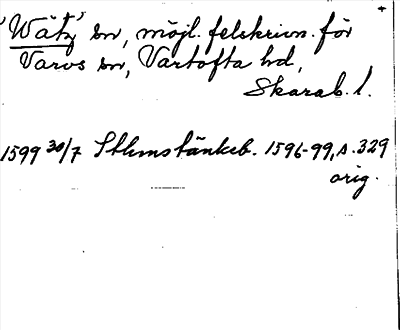 'Wätz' sn, möjl. felskrivn. för
Varvs sn, Vartofta hd,
Skarab. l.
1599 30/7 Sthmstänkeb. 1596-99, s. 329
orig.